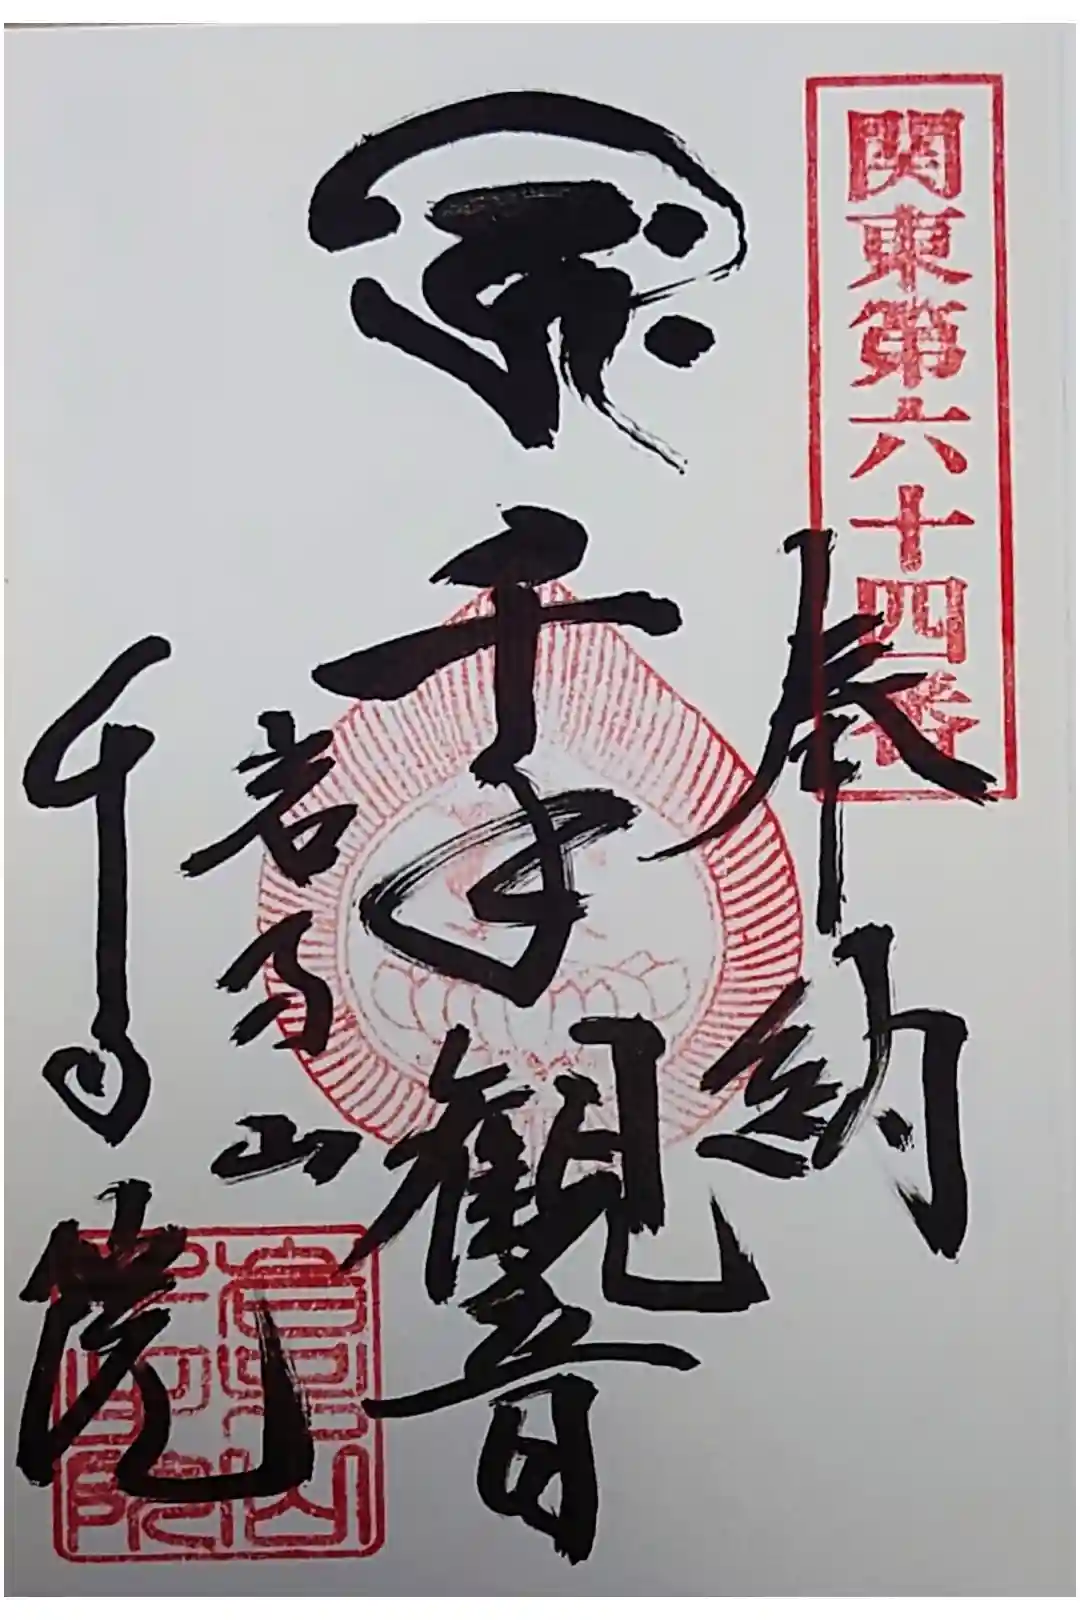 関東第六十四番
奉納
千手觀音
岩子山
千手院